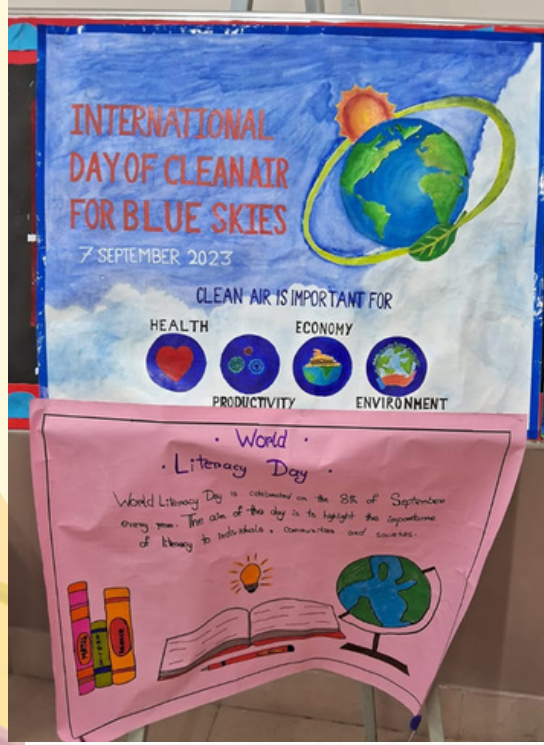 INTERNATIONAL
DAY OF CLEAN AIR
FOR BLUE SKIES
7 SEPTEMBER 2023
CLEAN AIR IS IMPORTANT FOR
HEALTH
ECONOMY
PRODUCTIVITY
ENVIRONMENT
World
Literacy Day
World Literacy Day is celebrated on the 8th of September
every year. The aim of the day is to highlight the importance
of literacy to individuals, communities and societies.
MATHS
SCIENCE